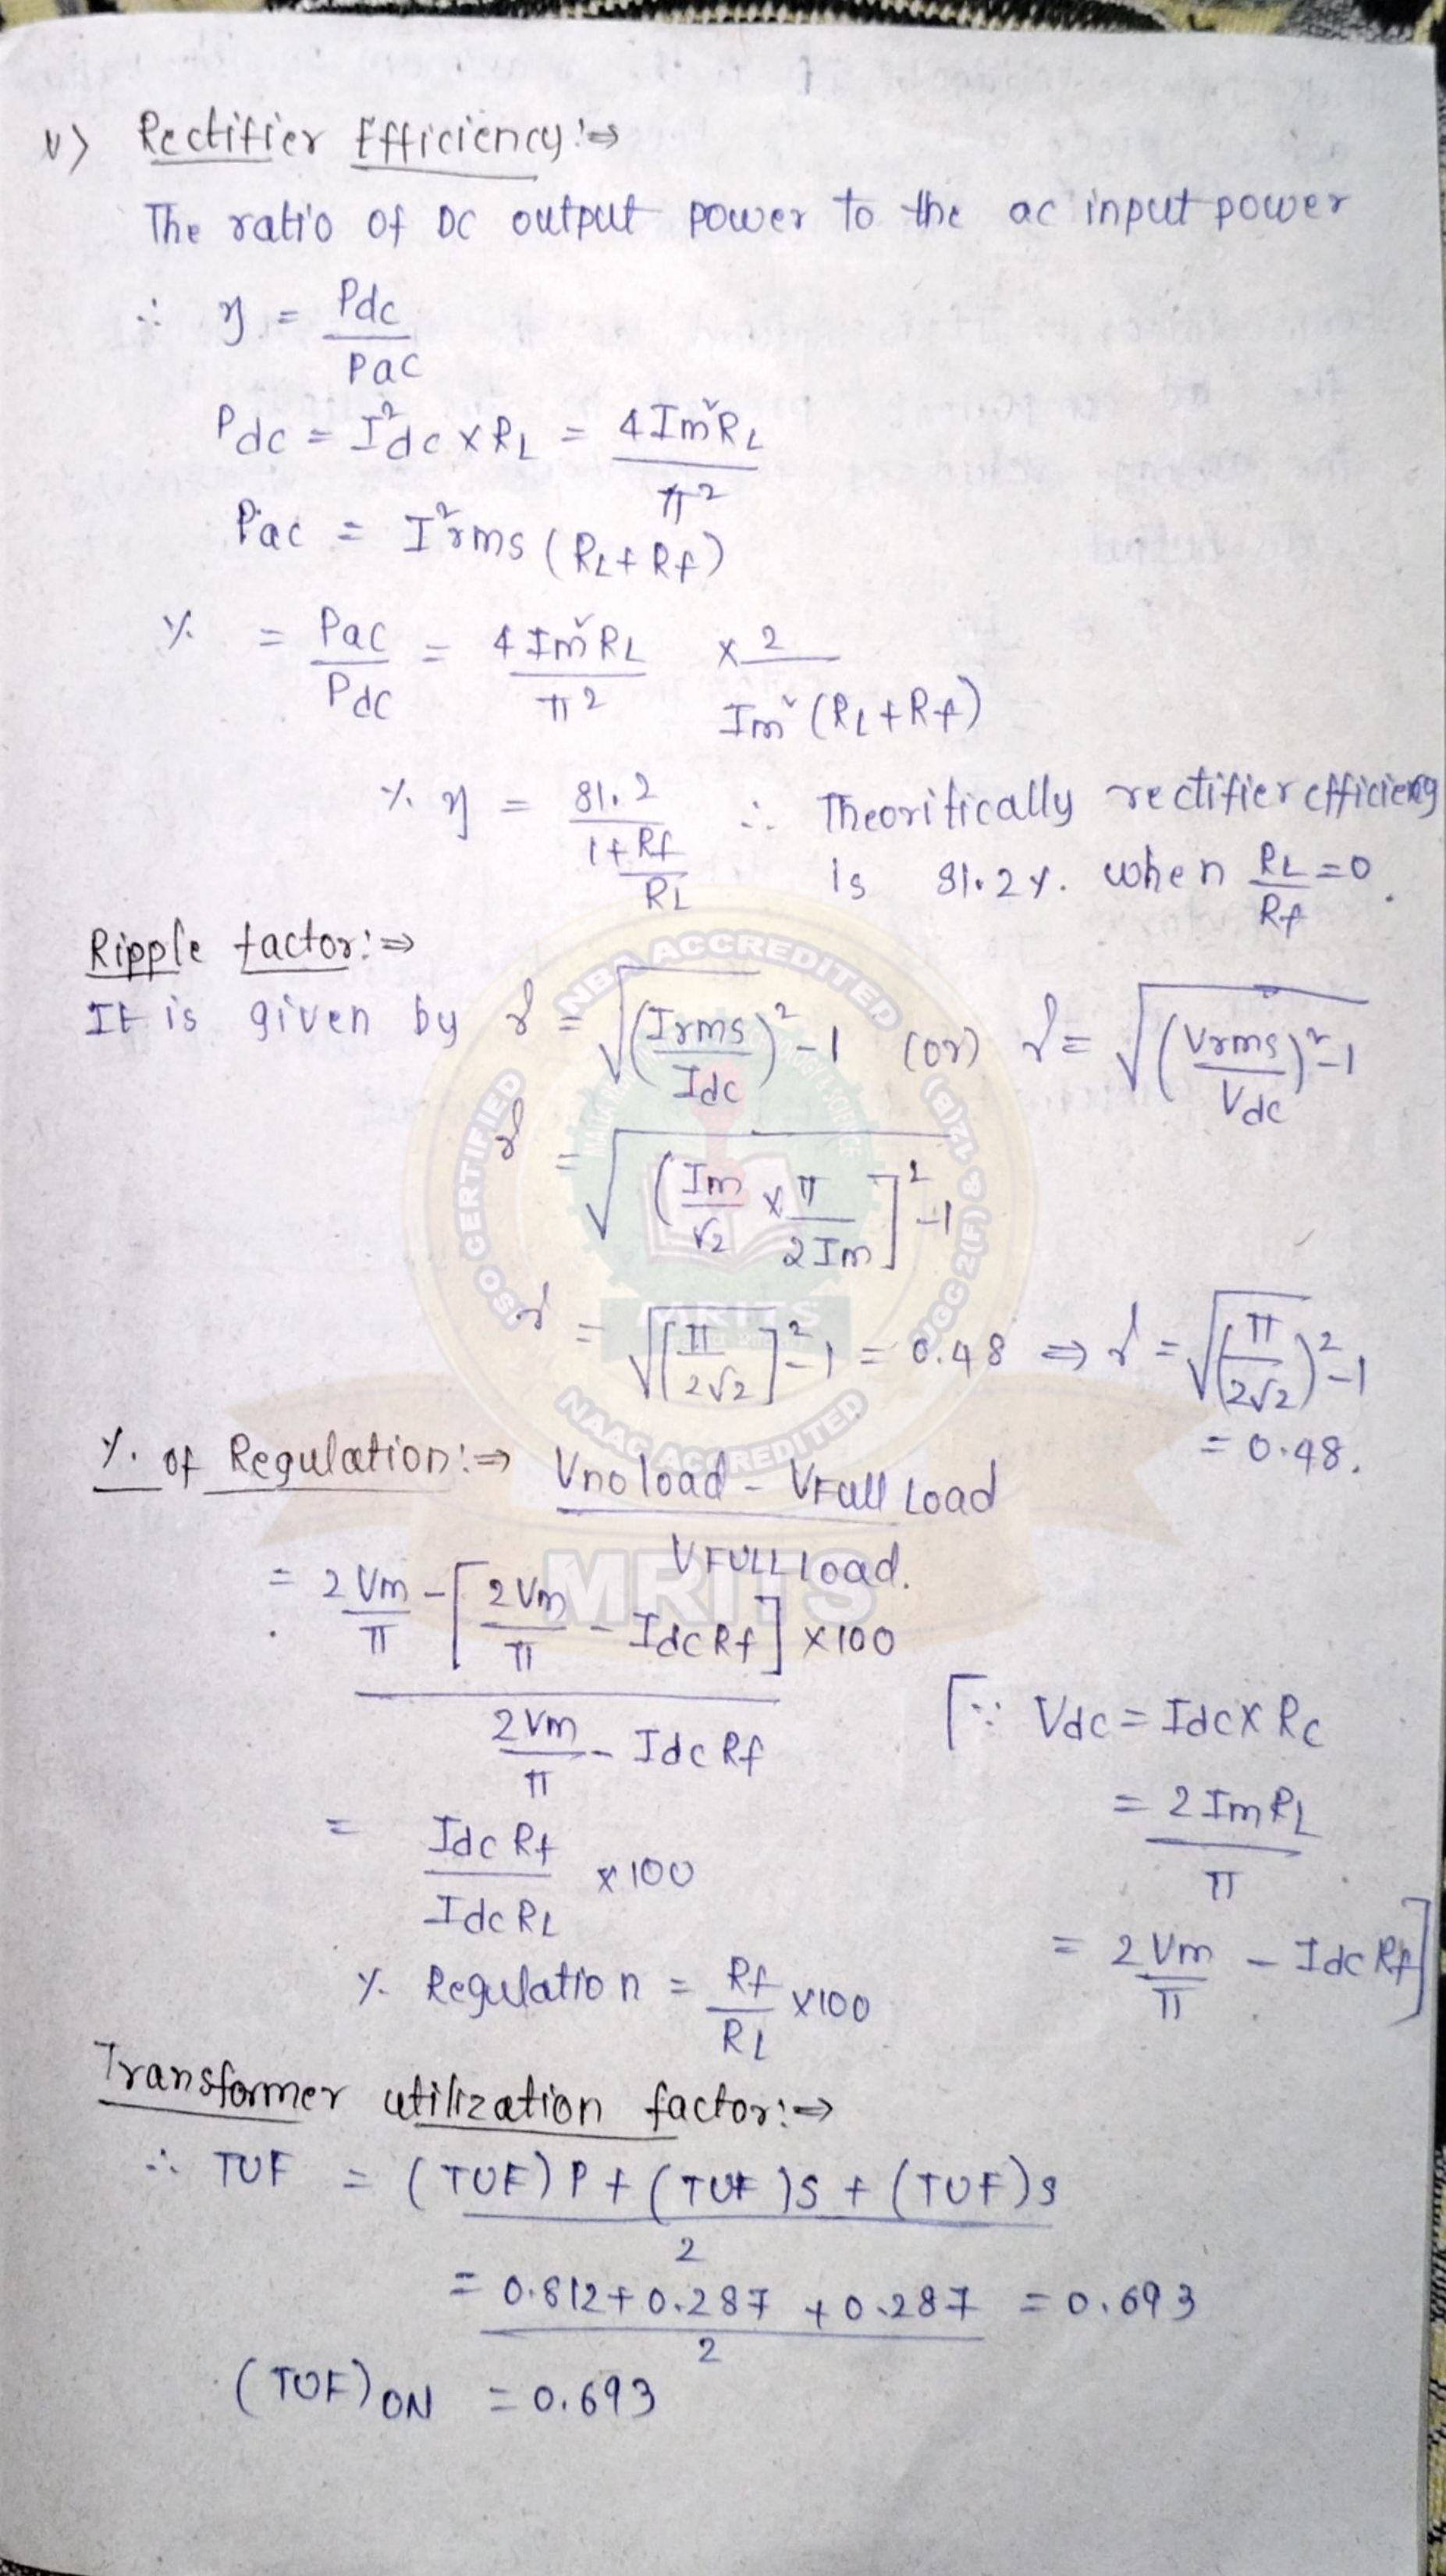 v) Rectifier Efficiency:⇒
The ratio of DC output power to the ac input power
∴ η = Pdc / Pac
Pdc = I²dc x RL = 4Im²RL / π²
Pac = I²rms (RL+Rf)
% = Pac / Pdc = 4Im²RL / π² x 2 / Im²(RL+Rf)
% η = 81.2 / 1+Rf/RL ∴ Theoritically rectifier efficiency
is 81.2%. when RL/Rf = 0.
Ripple factor:⇒
It is given by γ = √(Irms/Idc)²-1 (or) γ = √(Vrms/Vdc)²-1
γ = √(Im/√2 x π/2Im]²-1
γ = √[π/2√2]²-1 = 0.48 ⇒ γ = √(π/2√2)²-1
= 0.48.
%. of Regulation:⇒ Vno load - VFull Load / VFULL load.
= 2Vm/π - [2Vm/π - IdcRf] x100 / 2Vm/π - IdcRf
[∵ Vdc = Idc x Rc
= 2ImRL / π
= 2Vm/π - IdcRf]
= IdcRf / IdcRL x100
% Regulation = Rf/RL x100
Transformer utilization factor:⇒
∴ TUF = (TUF)P + (TUF)S + (TUF)S / 2
= 0.812 + 0.287 + 0.287 / 2 = 0.693
(TUF)ON = 0.693
NBA ACCREDITED
ISO CERTIFIED
UGC 2(F) & 12(B)
MRITS
NAAC ACCREDITED
MRITS